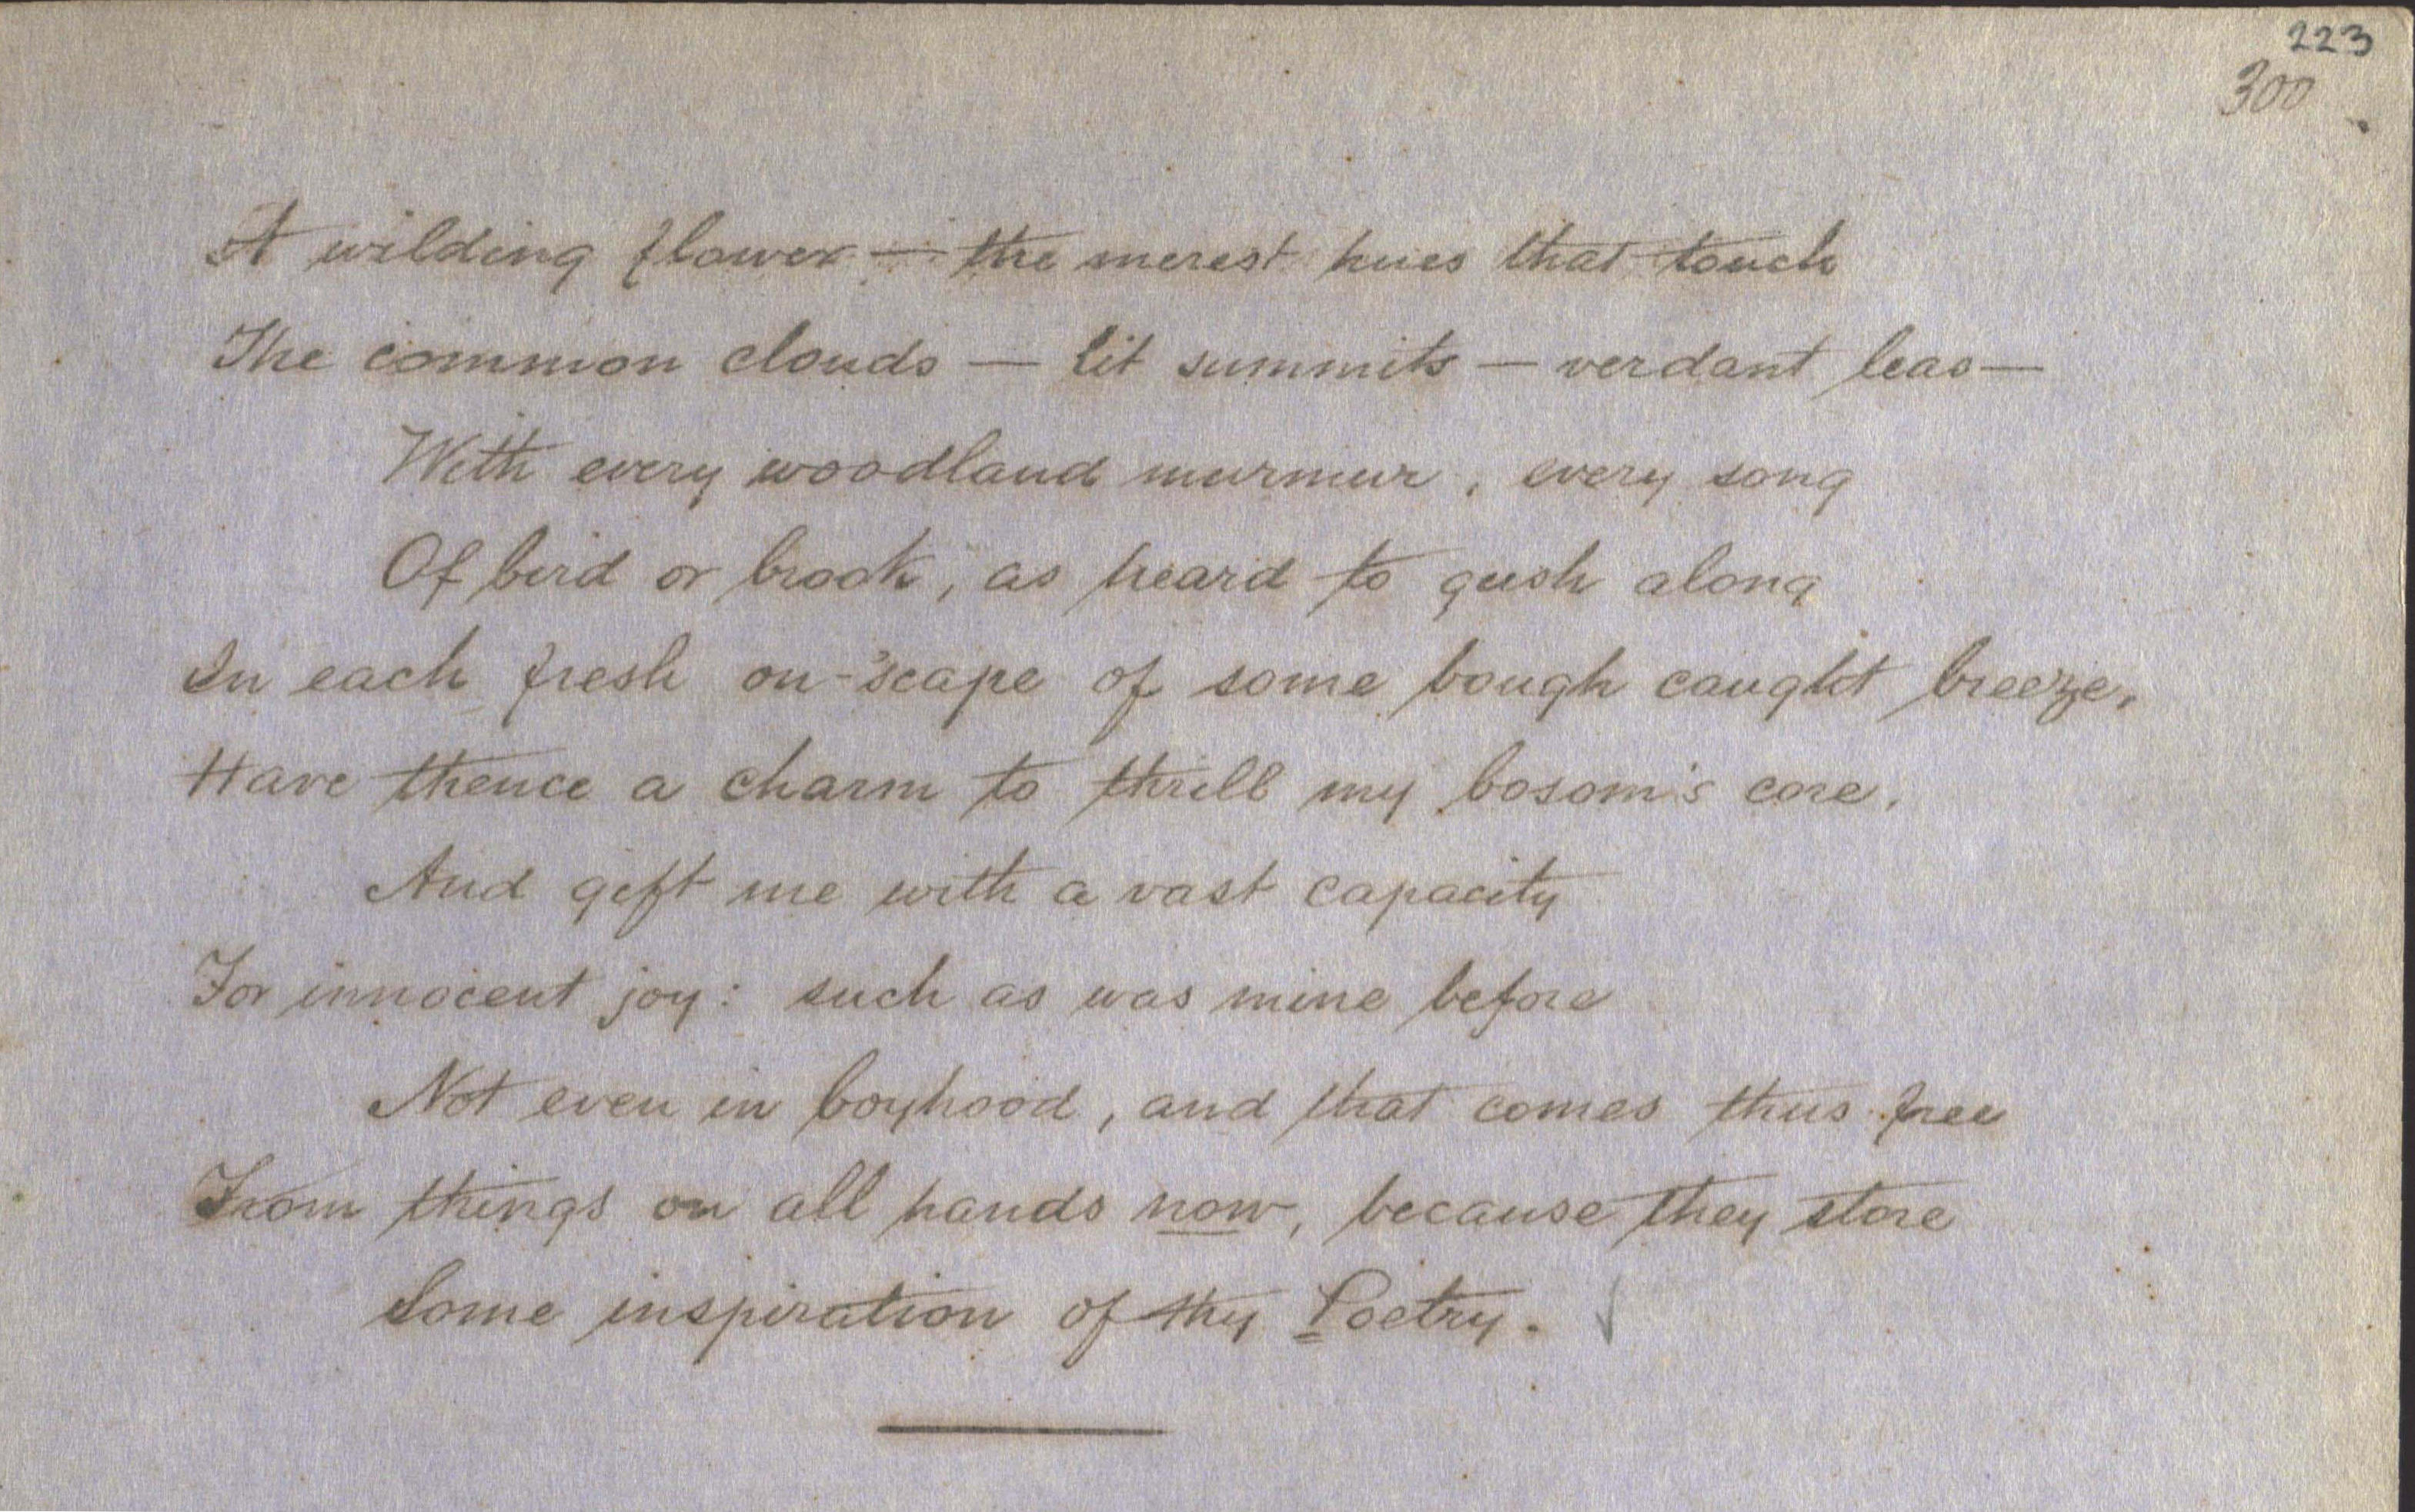 223
300
A wilding flower — the merest hues that touch
The common clouds — lit summits — verdant leas —
With every woodland murmur, every song
Of bird or brook, as heard to gush along
In each fresh on-'scape of some bough caught breeze,
Have thence a charm to thrill my bosom's core,
And gift me with a vast capacity
For innocent joy: such as was mine before
Not even in boyhood, and that comes thus free
From things on all hands now, because they store
Some inspiration of thy Poetry.